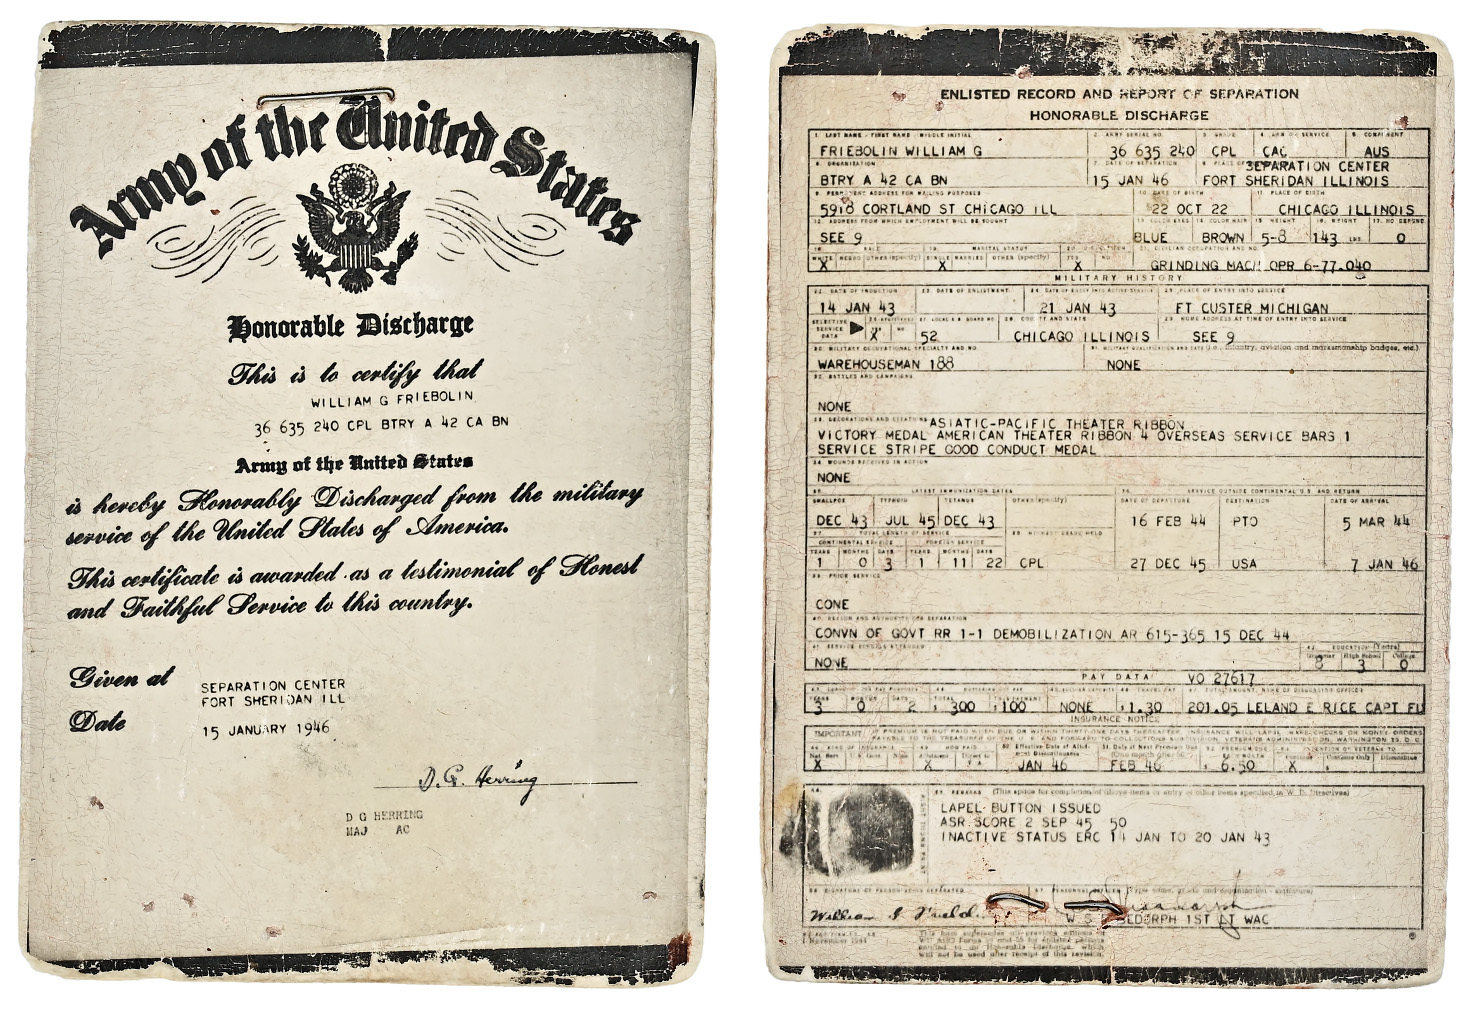 Army of the United States
Honorable Discharge
This is to certify that
WILLIAM G FRIEBOLIN
36 635 240 CPL BTRY A 42 CA BN
Army of the United States
is hereby Honorably Discharged from the military
service of the United States of America.
This certificate is awarded as a testimonial of Honest
and Faithful Service to this country.
Given at SEPARATION CENTER
FORT SHERIDAN ILL
Date 15 JANUARY 1946
D. G. Herring
D G HERRING
MAJ AC
ENLISTED RECORD AND REPORT OF SEPARATION
HONORABLE DISCHARGE
1. LAST NAME - FIRST NAME - MIDDLE INITIAL 2. ARMY SERIAL NO. 3. GRADE 4. ARM OR SERVICE 5. COMPONENT
FRIEBOLIN WILLIAM G 36 635 240 CPL CAC AUS
6. ORGANIZATION 7. DATE OF SEPARATION 8. PLACE OF SEPARATION CENTER
BTRY A 42 CA BN 15 JAN 46 FORT SHERIDAN ILLINOIS
9. PERMANENT ADDRESS FOR MAILING PURPOSES 10. DATE OF BIRTH 11. PLACE OF BIRTH
5918 CORTLAND ST CHICAGO ILL 22 OCT 22 CHICAGO ILLINOIS
12. ADDRESS FROM WHICH EMPLOYMENT WILL BE SOUGHT 13. COLOR EYES 14. COLOR HAIR 15. HEIGHT 16. WEIGHT 17. NO. DEPEND.
SEE 9 BLUE BROWN 5-8 143 LBS. 0
WHITE NEGRO OTHER (specify) SINGLE MARRIED OTHER (specify) YES NO
X X X GRINDING MACH OPR 6-77.040
MILITARY HISTORY
22. DATE OF INDUCTION 23. DATE OF ENLISTMENT 24. DATE OF ENTRY INTO ACTIVE SERVICE 25. PLACE OF ENTRY INTO SERVICE
14 JAN 43 21 JAN 43 FT CUSTER MICHIGAN
SELECTIVE SERVICE DATA 27. LOCAL S.S. BOARD NO. 28. COUNTY AND STATE 29. HOME ADDRESS AT TIME OF ENTRY INTO SERVICE
X 52 CHICAGO ILLINOIS SEE 9
30. MILITARY OCCUPATIONAL SPECIALTY AND NO. 31. MILITARY QUALIFICATION AND DATE (i.e., infantry, aviation and marksmanship badges, etc.)
WAREHOUSEMAN 188 NONE
32. BATTLES AND CAMPAIGNS
NONE
33. DECORATIONS AND CITATIONS ASIATIC-PACIFIC THEATER RIBBON
VICTORY MEDAL AMERICAN THEATER RIBBON 4 OVERSEAS SERVICE BARS 1
SERVICE STRIPE GOOD CONDUCT MEDAL
34. WOUNDS RECEIVED IN ACTION
NONE
35. LATEST IMMUNIZATION DATES 36. SERVICE OUTSIDE CONTINENTAL U.S. AND RETURN
SMALLPOX TYPHOID TETANUS OTHER (specify) DATE OF DEPARTURE DESTINATION DATE OF ARRIVAL
DEC 43 JUL 45 DEC 43 16 FEB 44 PTO 5 MAR 44
37. TOTAL LENGTH OF SERVICE 38. HIGHEST GRADE HELD
CONTINENTAL SERVICE FOREIGN SERVICE
YEARS MONTHS DAYS YEARS MONTHS DAYS
1 0 3 1 11 22 CPL 27 DEC 45 USA 7 JAN 46
39. PRIOR SERVICE
CONE
40. REASON AND AUTHORITY FOR SEPARATION
CONVN OF GOVT RR 1-1 DEMOBILIZATION AR 615-365 15 DEC 44
41. SERVICE SCHOOLS ATTENDED 42. EDUCATION (Years)
Grammar High School College
NONE 8 3 0
PAY DATA VO 27617
3 0 2 300 100 NONE 1.30 201.05 LELAND E RICE CAPT FD
INSURANCE NOTICE
JAN 46 FEB 46 6.50
X X X
55. REMARKS (This space for completion of above items or entry of other items specified in W. D. Directives)
LAPEL BUTTON ISSUED
ASR SCORE 2 SEP 45 50
INACTIVE STATUS ERC 14 JAN TO 20 JAN 43
56. SIGNATURE OF PERSON BEING SEPARATED 57. PERSONNEL OFFICER (Type name, grade and organization - signature)
William G
1ST LT WAC